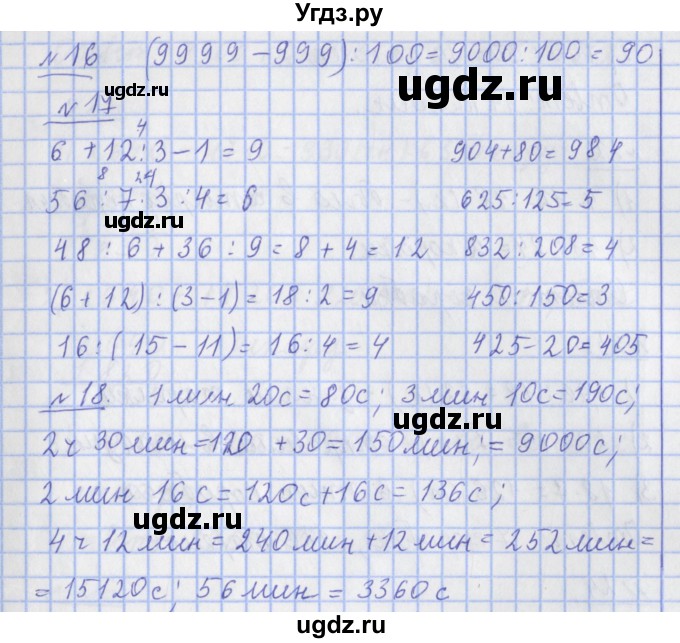 Угдз.ру
№16 (9999-999):100=9000:100=90
ugdz.ru
№17
ugdz.ru
4
6+12:3-1=9 904+80=984
8 24
56:7·3:4=6 625:125=5
ugdz.ru
48:6+36:9=8+4=12 832:208=4
(6+12):(3-1)=18:2=9 450:150=3
16:(15-11)=16:4=4 425-20=405
№18. 1мин 20с=80с; 3мин 10с=190с;
ugdz.ru
2ч 30мин=120 +30=150мин;=9000с;
2мин 16с=120с+16с=136с;
ugdz.ru
4ч 12мин=240мин+12мин=252мин=
=15120с; 56мин=3360с
ugdz.ru